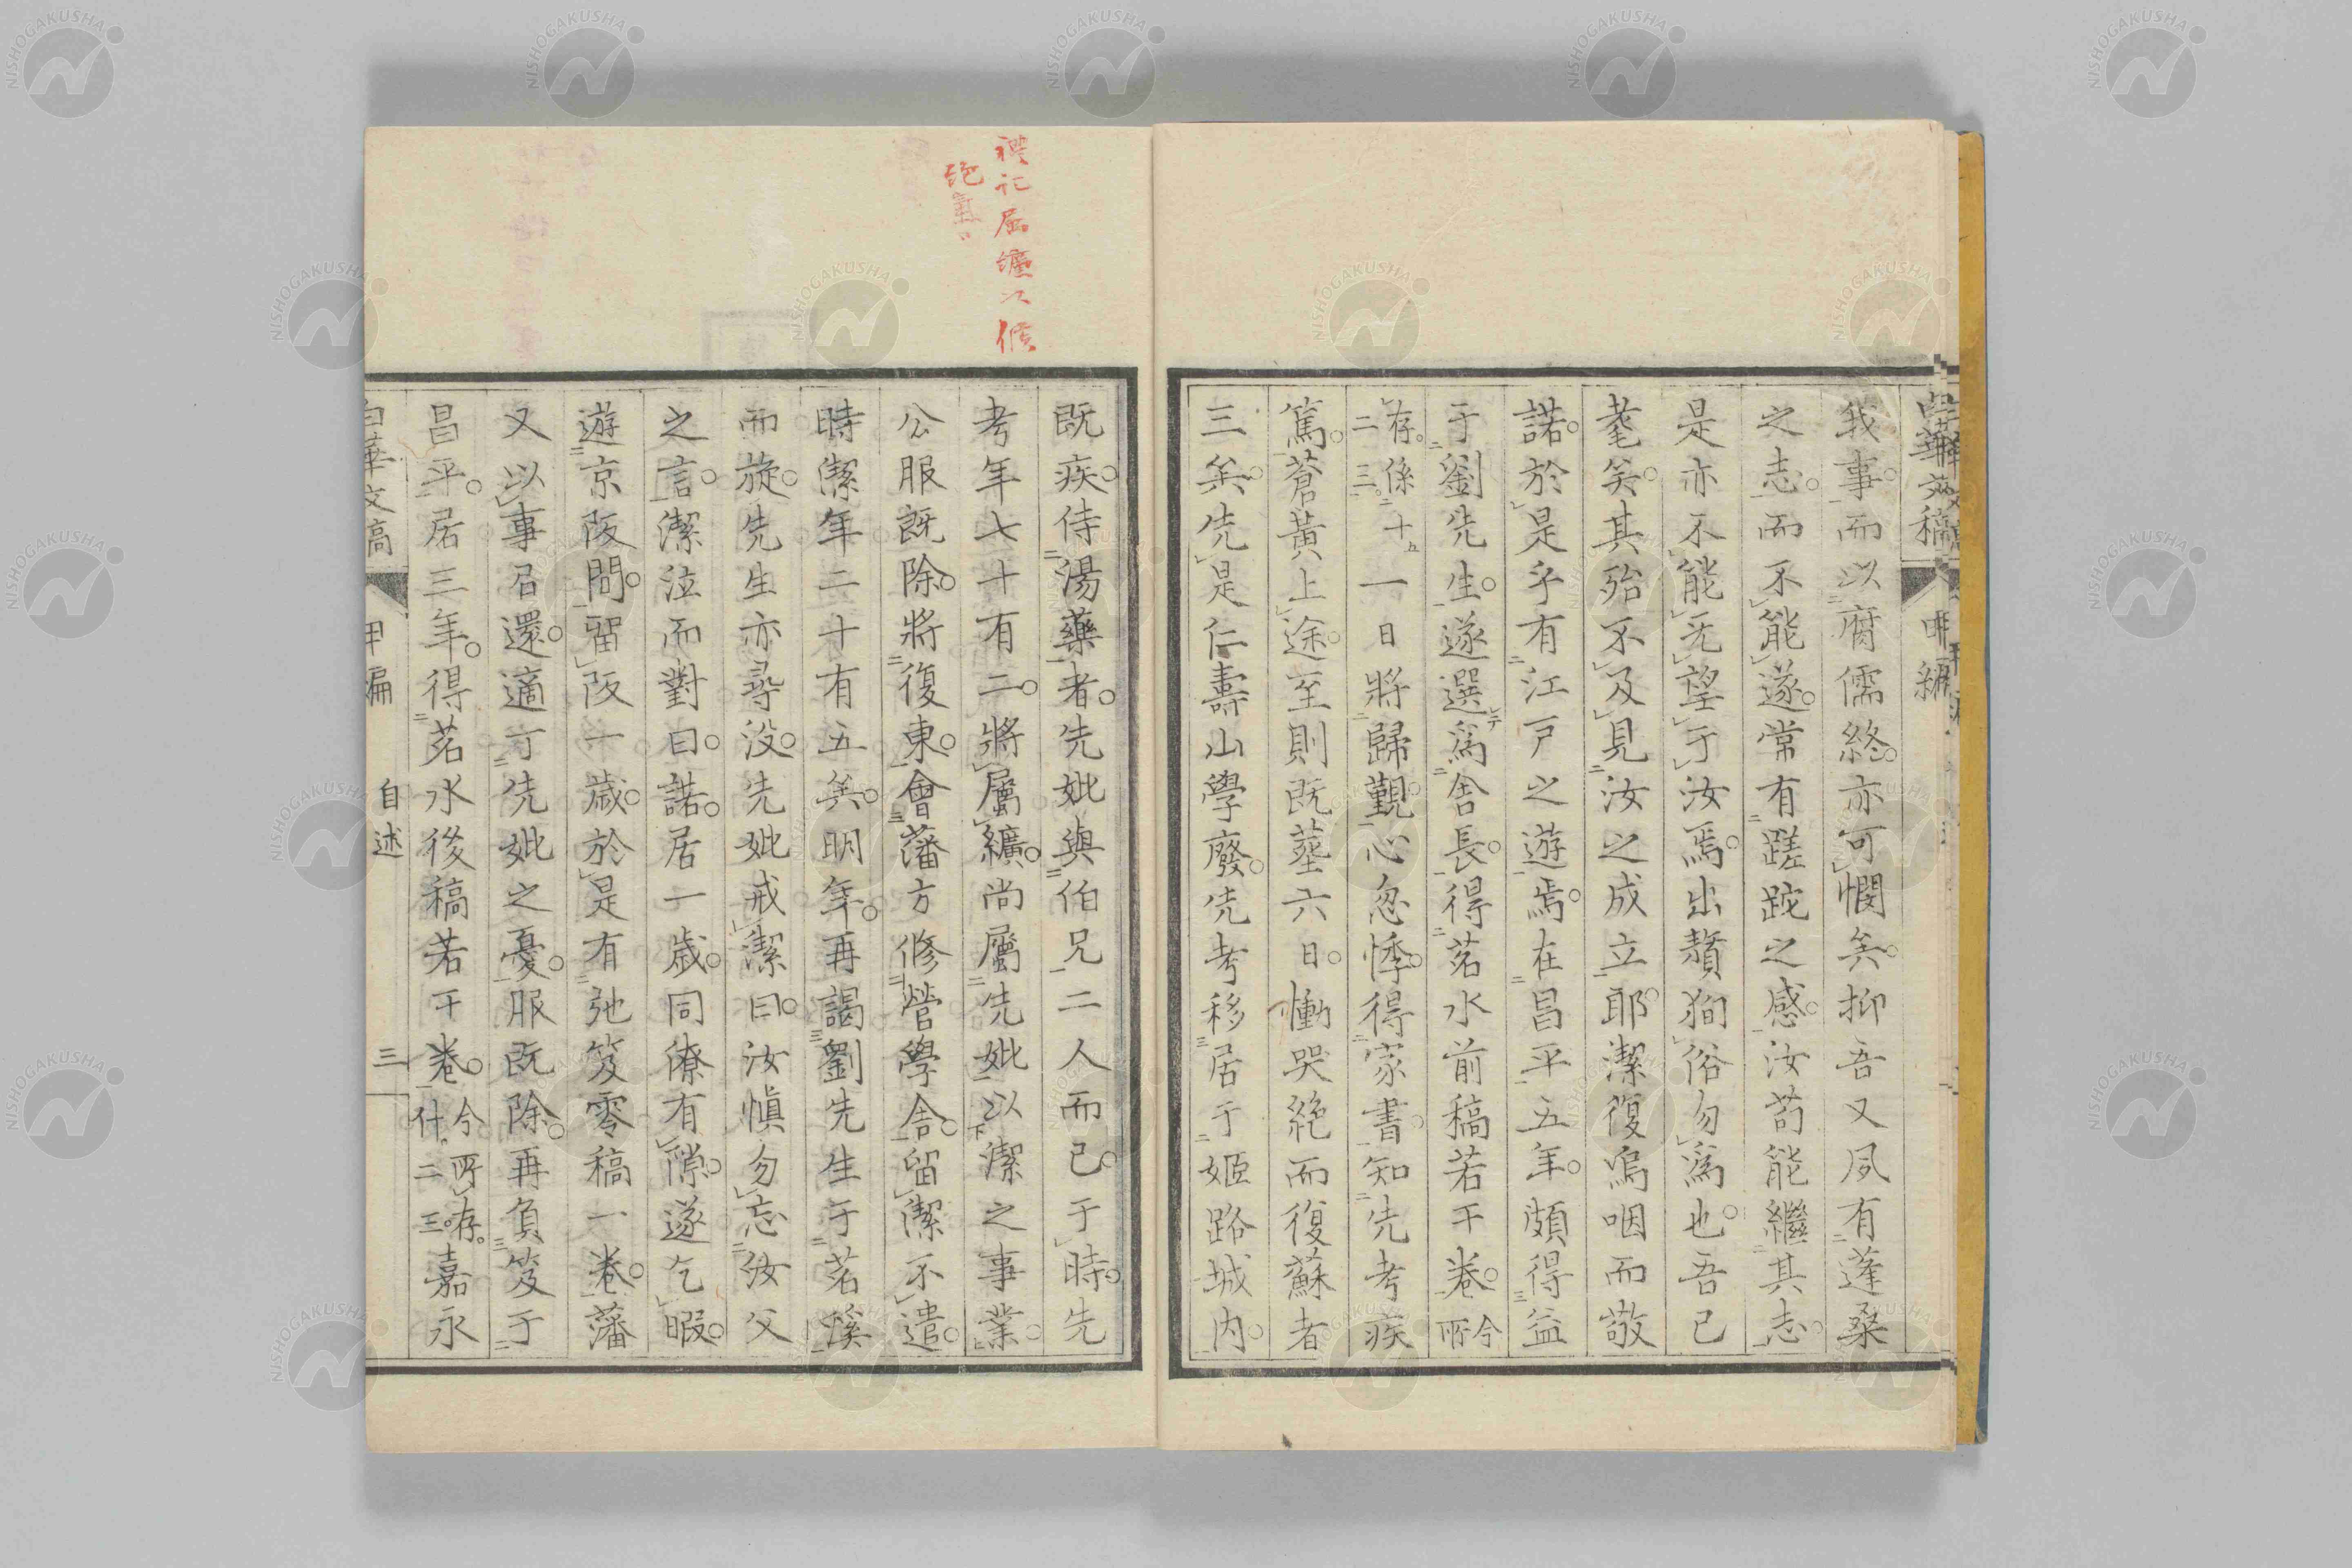 我事。而以腐儒終。亦可憫矣。抑吾又夙有蓬桑
之志。而不能遂。常有蹉跎之感。汝苟能繼其志。
是亦不能无望于汝焉。出贅狥俗勿爲也。吾已
耄矣。其殆不及見汝之成立耶。潔復嗚咽而敬
諾。於是乎有江戸之遊焉。在昌平五年。頗得益
于劉先生。遂選爲舎長。得茗水前稿若干巻。今所
存。係十五二三。一日將歸覲。心忽悸。得家書。知先考疾
篤。蒼黃上途。至則既葬六日。慟哭絶而復蘇者
三矣。先是仁壽山學廢。先考移居于姫路城内。
既疾。侍湯藥者。先妣與伯兄二人而已。于時。先
考年七十有二。將屬纊。尚屬先妣以潔之事業。
公服既除。將復東。會藩方修營學舎。留潔不遣。
時潔年二十有五矣。明年。再謁劉先生于茗溪
而旋。先生亦尋没。先妣戒潔曰。汝愼勿忘汝父
之言。潔泣而對曰。諾。居一歳。同僚有隙。遂乞暇。
遊京阪間。留阪一歳。於是有弛笈零稿一巻。藩
又以事召還。適丁先妣之憂。服既除。再負笈于
昌平。居三年。得茗水後稿若干巻。今所存。什二三。嘉永
白華文稿 甲編 自述 三
禮記屬纊以俟
絶氣
NISHOGAKUSHA